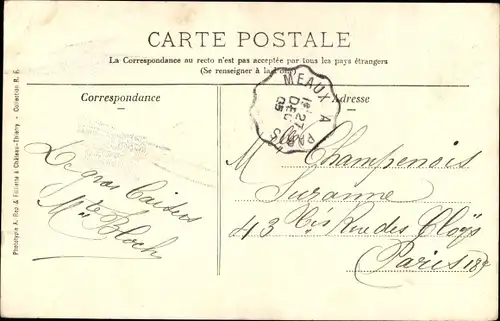 CARTE POSTALE
La Correspondance au recto n'est pas acceptée par tous les pays étrangers
(Se renseigner à la
Correspondance
Adresse
MEAUX A PARIS
1º 27
DEC
05
De gros Baisers
Mlle Bloch
Mlle Champenois
Suzanne
43 bis Rue des Cloÿs
Paris 18e
Phototypie A. Rep & Filliette à Château-Thierry - Collection R. F.